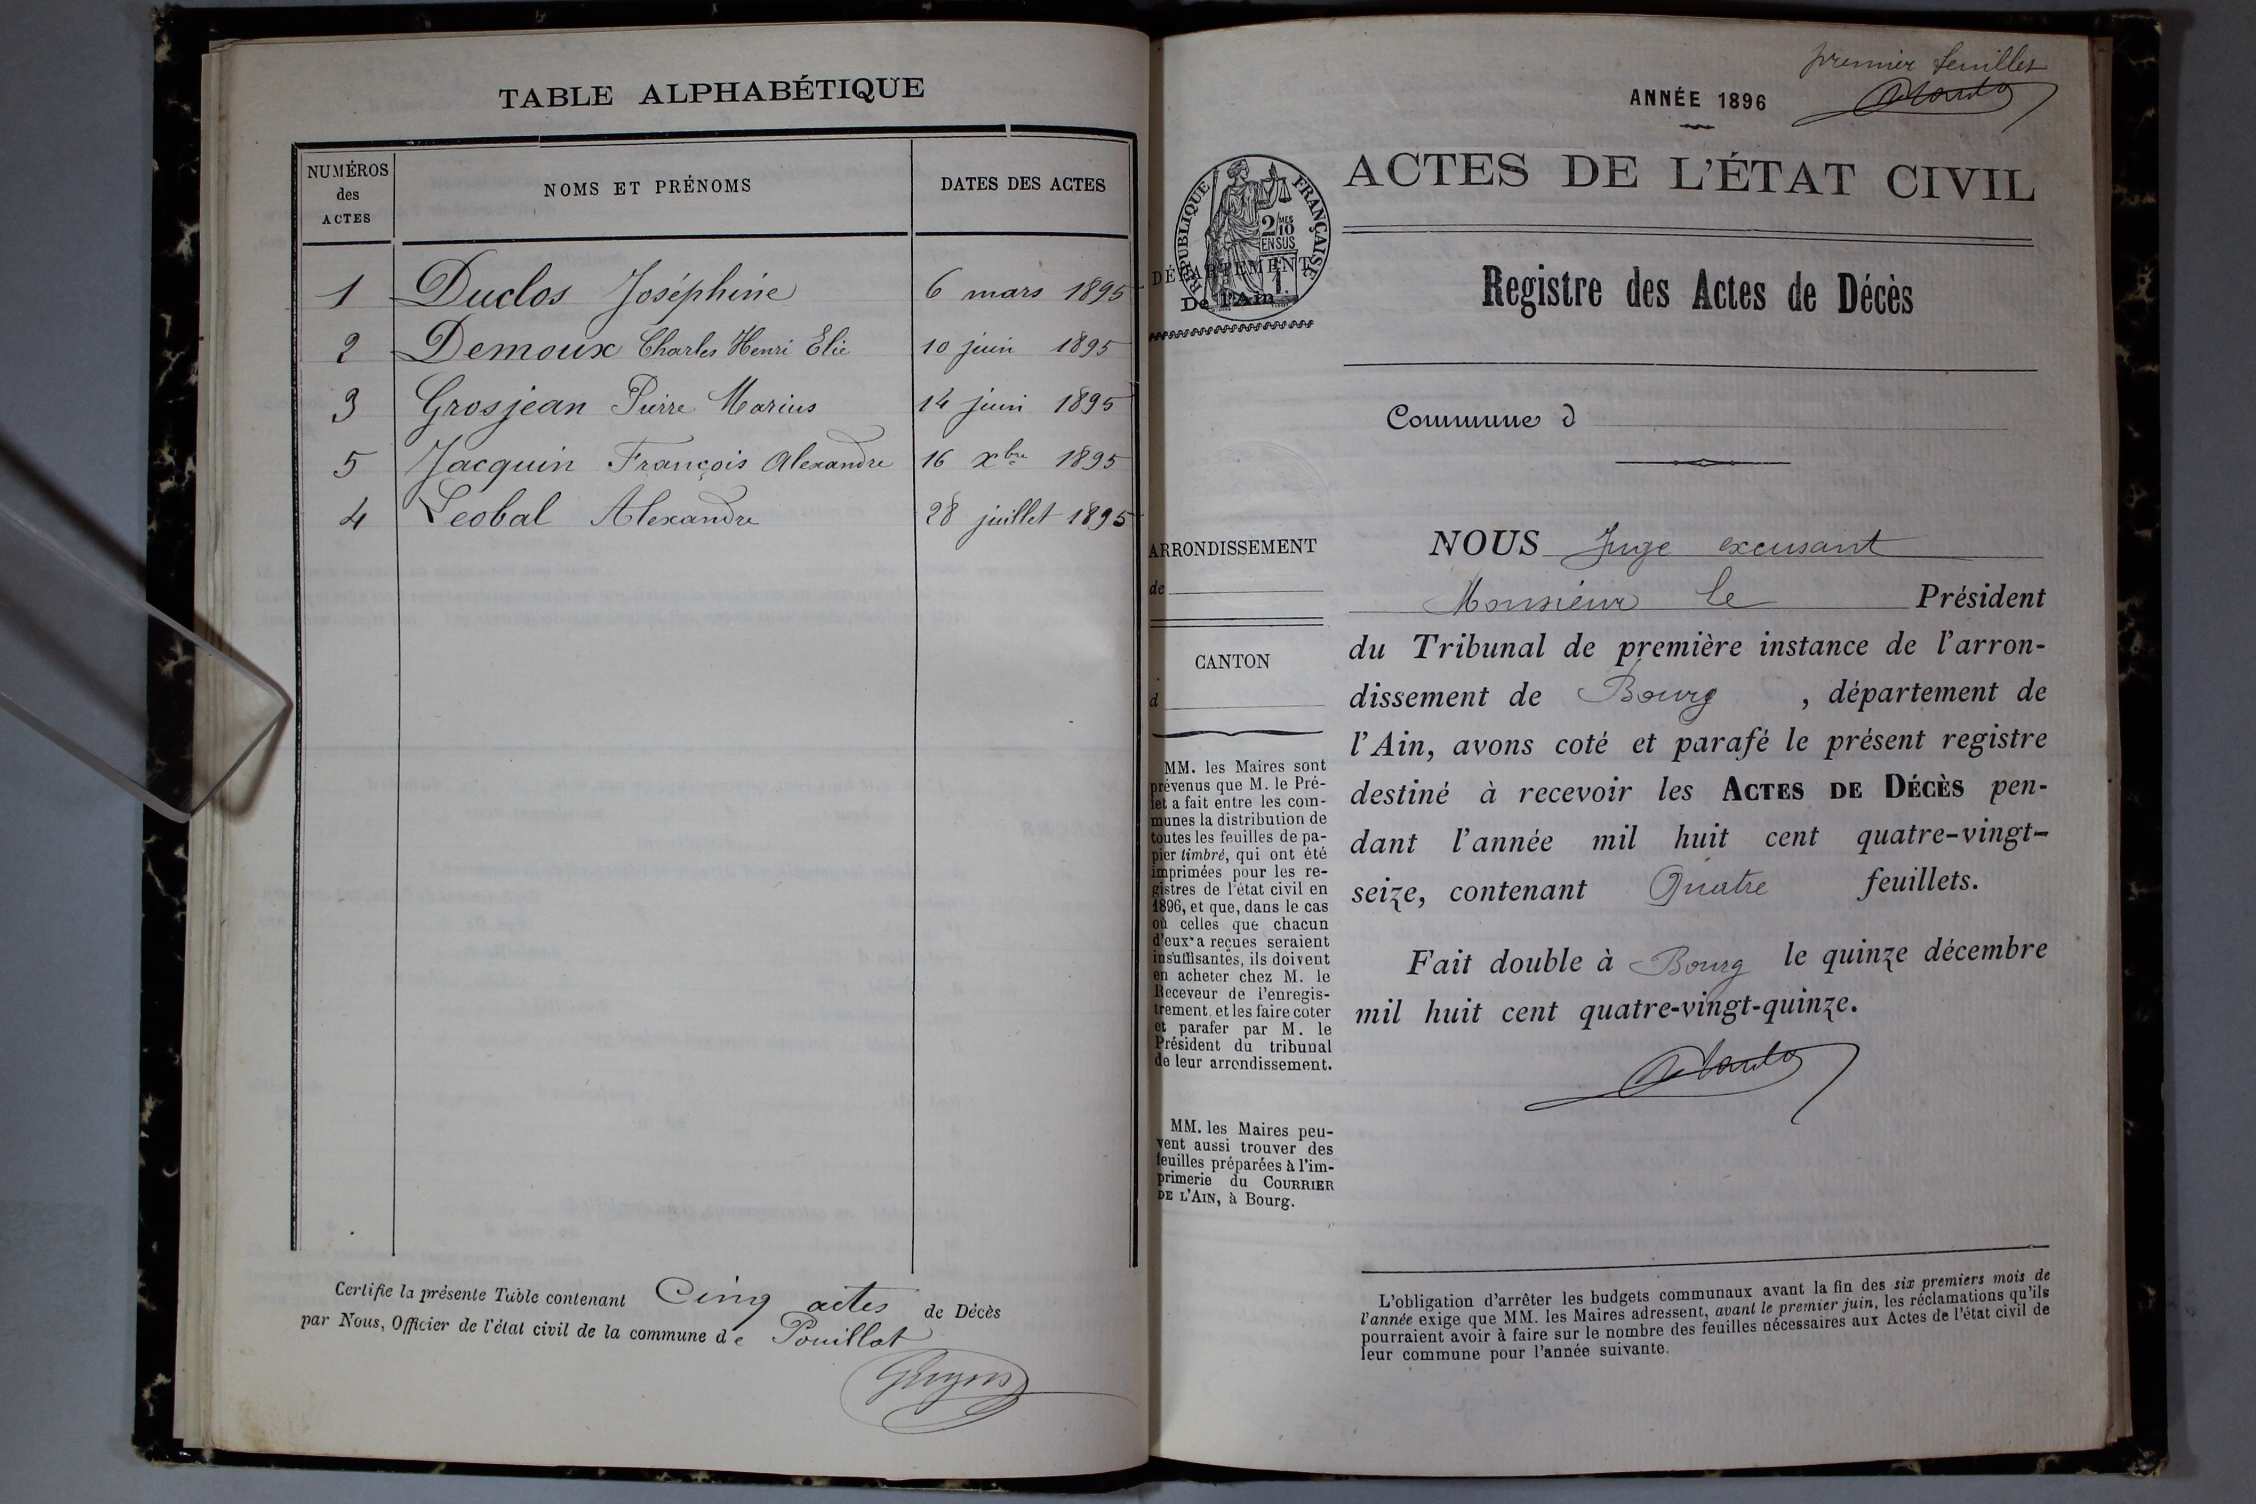 TABLE ALPHABÉTIQUE
NUMÉROS des ACTES NOMS ET PRÉNOMS DATES DES ACTES
1 Duclos Joséphine 6 mars 1895
2 Demoux Charles Henri Elie 10 juin 1895
3 Grosjean Pierre Marius 14 juin 1895
5 Jacquin François Alexandre 16 Xbre 1895
4 Leobal Alexandre 28 juillet 1895
Certifie la présente Table contenant Cinq actes de Décès
par Nous, Officier de l'état civil de la commune de Pouillat
premier feuillet
ANNÉE 1896
ACTES DE L'ÉTAT CIVIL
RÉPUBLIQUE FRANÇAISE
2/10 MES
EN SUS
DÉPARTEMENT
De l'Ain
Registre des Actes de Décès
Commune d
ARRONDISSEMENT
de
CANTON
d
MM. les Maires sont
prévenus que M. le Pré-
fet a fait entre les com-
munes la distribution de
toutes les feuilles de pa-
pier timbré, qui ont été
imprimées pour les re-
gistres de l'état civil en
1896, et que, dans le cas
où celles que chacun
d'eux a reçues seraient
insuffisantes, ils doivent
en acheter chez M. le
Receveur de l'enregis-
trement, et les faire coter
et parafer par M. le
Président du tribunal
de leur arrondissement.
MM. les Maires peu-
vent aussi trouver des
feuilles préparées à l'im-
primerie du COURRIER
DE L'AIN, à Bourg.
NOUS Juge excusant
Monsieur le Président
du Tribunal de première instance de l'arron-
dissement de Bourg, département de
l'Ain, avons coté et parafé le présent registre
destiné à recevoir les ACTES DE DÉCÈS pen-
dant l'année mil huit cent quatre-vingt-
seize, contenant Quatre feuillets.
Fait double à Bourg le quinze décembre
mil huit cent quatre-vingt-quinze.
L'obligation d'arrêter les budgets communaux avant la fin des six premiers mois de
l'année exige que MM. les Maires adressent, avant le premier juin, les réclamations qu'ils
pourraient avoir à faire sur le nombre des feuilles nécessaires aux Actes de l'état civil de
leur commune pour l'année suivante.